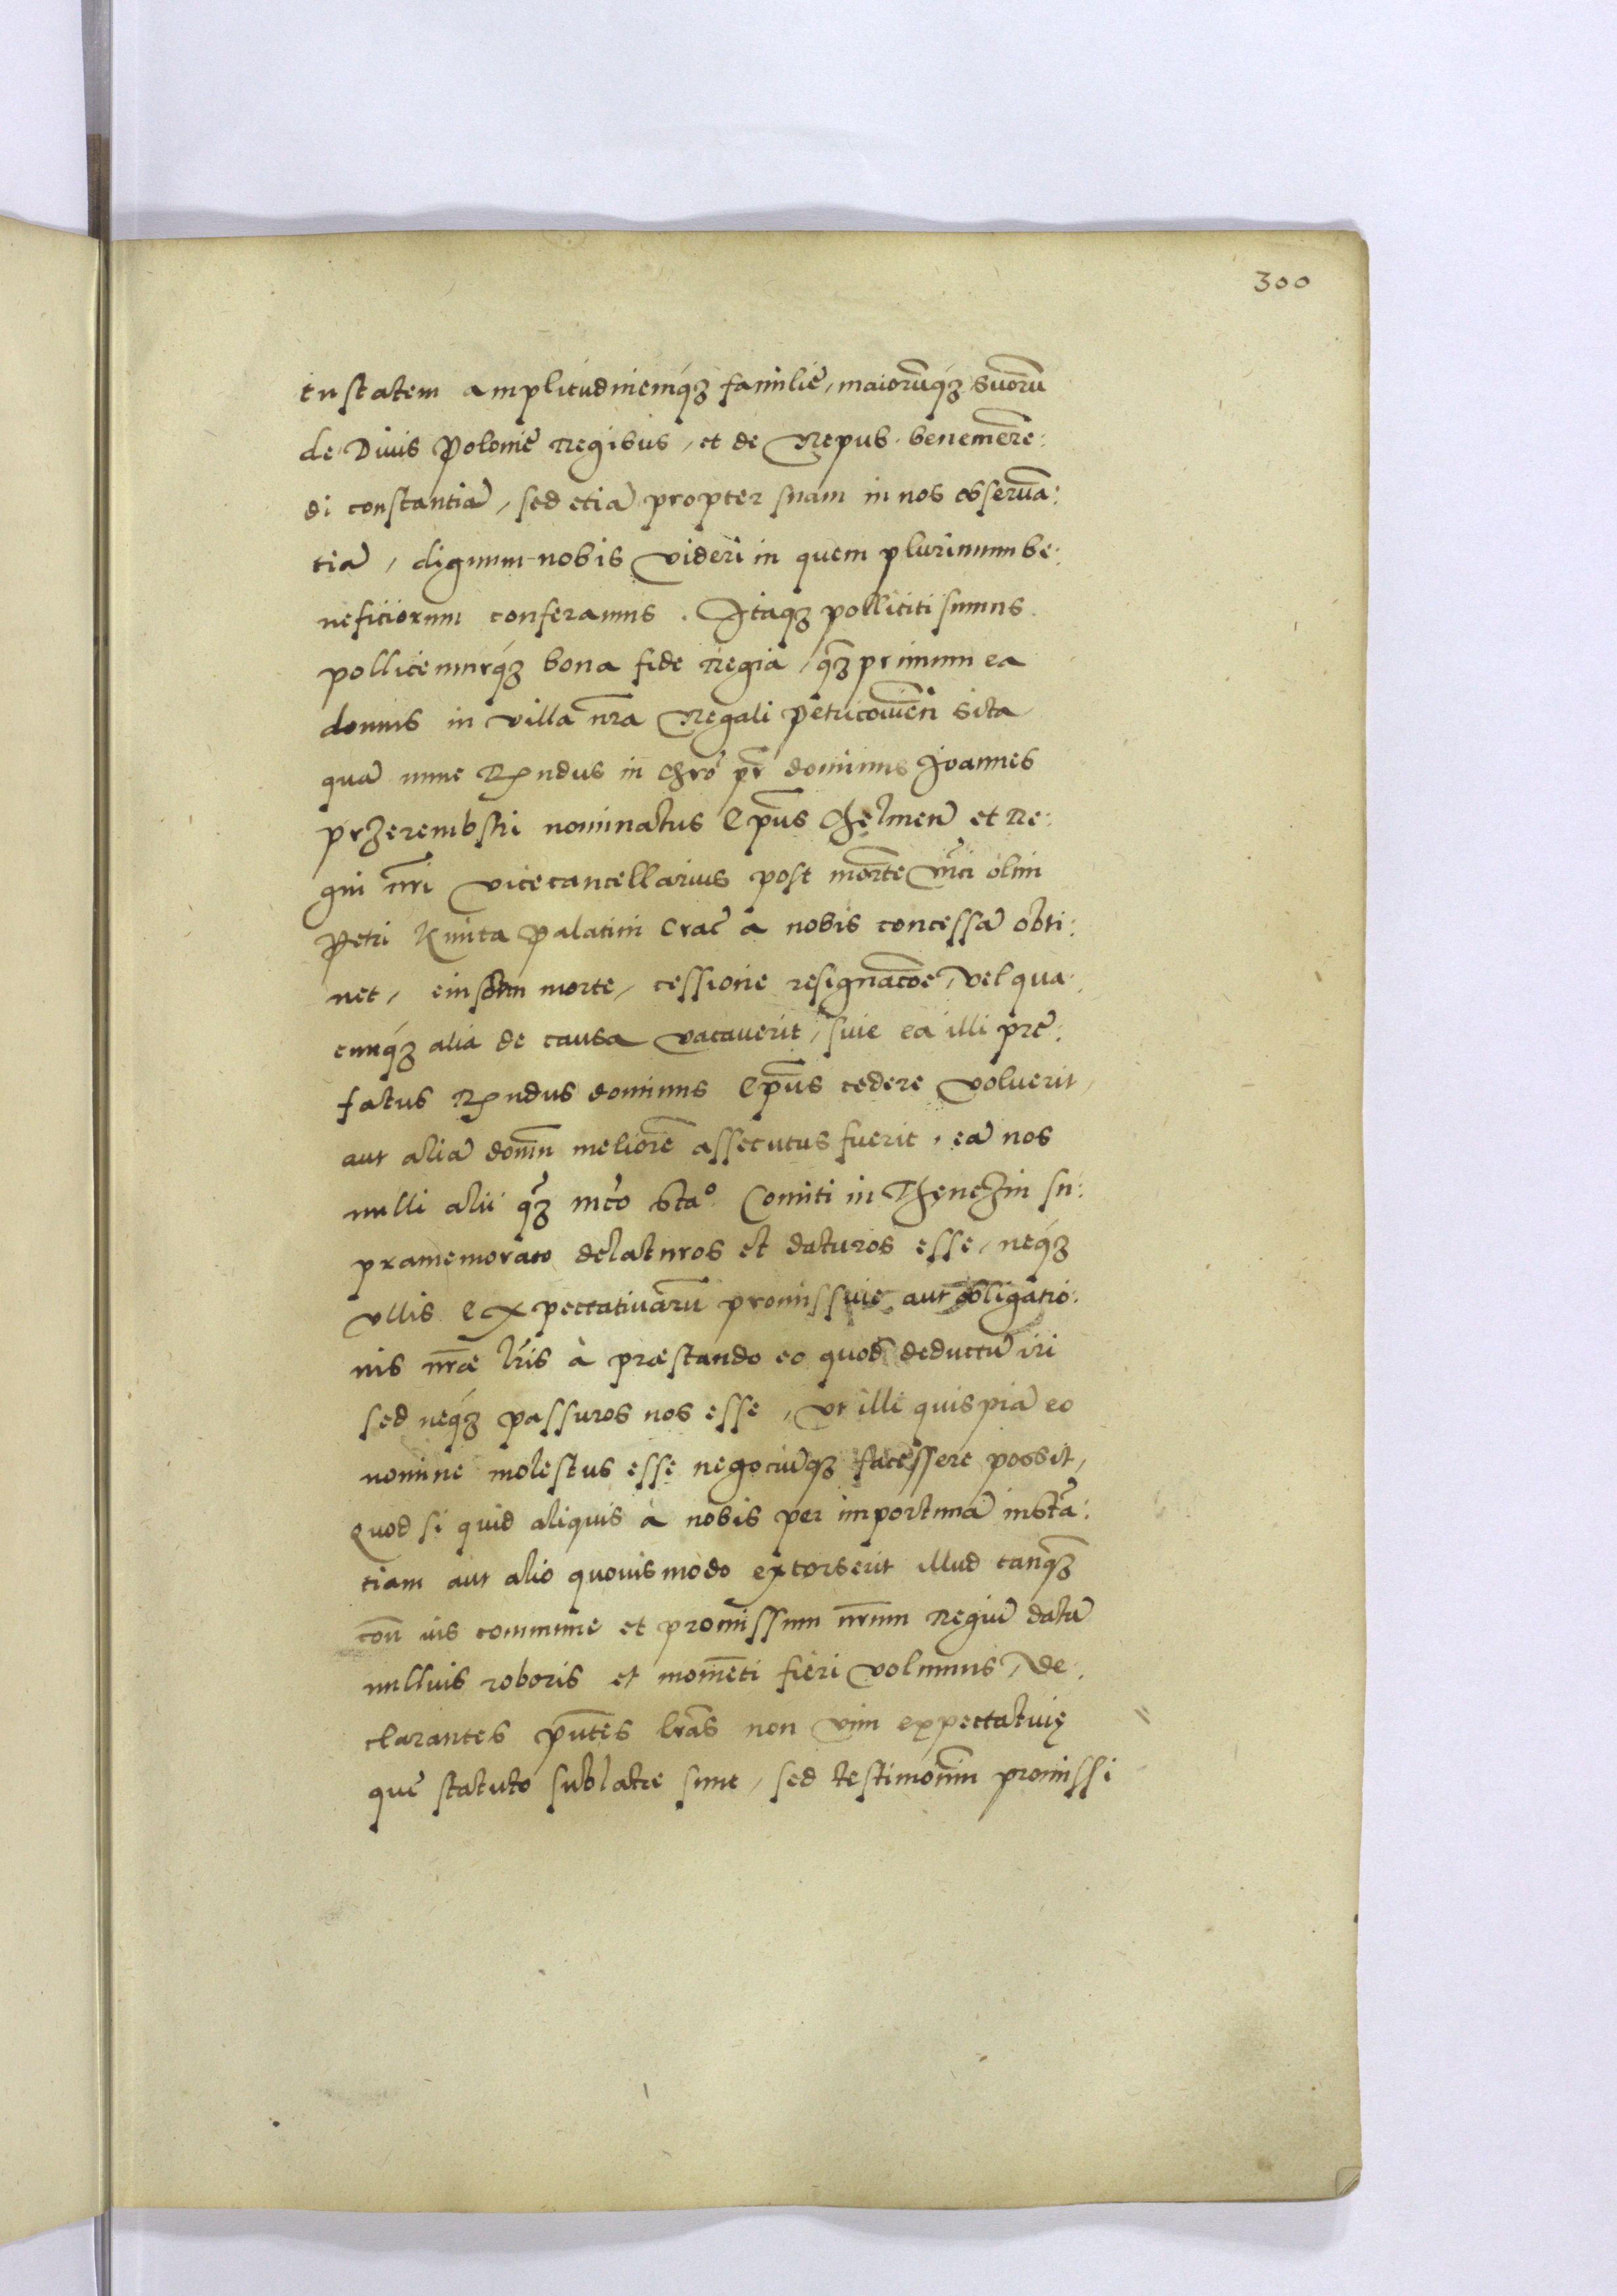 300
tustatem amplitudinemq́ꝫ familię, maiorūq́ꝫ suorū
de Divis Polonię Regibus, et de Repub. benemerē:
di constantiā, sed etiā propter suam in nos observā:
tiā, dignum nobis videri in quem plurimum be:
neficiorum conferamus. Itaqꝫ polliciti sumus
pollicemurq́ꝫ bona fide Regia, q̄ꝫ primum ea
domus in villa nr̄a Regali Petricovien̄ sita
quā nunc Rndus in Chrō pr̄ dominus Joannes
Przerembski nominatus Ep̄us Chelmen̄ et Re:
gni nr̄i vicecancellarius post mortē Mci olim
Petri Kmita Palatini Crac̄ a nobis concessā obti:
net, eiusdem morte, cessione resignac̄oe, vel qua
cunq́ꝫ alia de causa vacaverit, sive eā illi prę:
fatus Rndus dominus Ep̄us cedere voluerit,
aut aliā domū meliorē assecutus fuerit, eā nos
nulli alii q̄ꝫ mc̄o Sta° Comiti in Thenczin su:
pramemorato delaturos et daturos esse, neq́ꝫ
ullis Expectativarū promissive aut obligatio:
nis nr̄ae lr̄is à praestando eo quod deductū iri
sed neq́ꝫ passuros nos esse, ut illi quispiā eo
nomine molestus esse negociūqꝫ facessere possit,
Quod si quid aliquis à nobis per importunā instā:
tiam aut alio quovis modo extorserit illud tanq̄ꝫ
con̄ ius commune et promissum nr̄um Regiū datū
nullius roboris et momēti fieri volumus, De:
clarantes pn̄tes lr̄as non vim expectativę
quę statuto sublatę sunt, sed testimoniū promissi